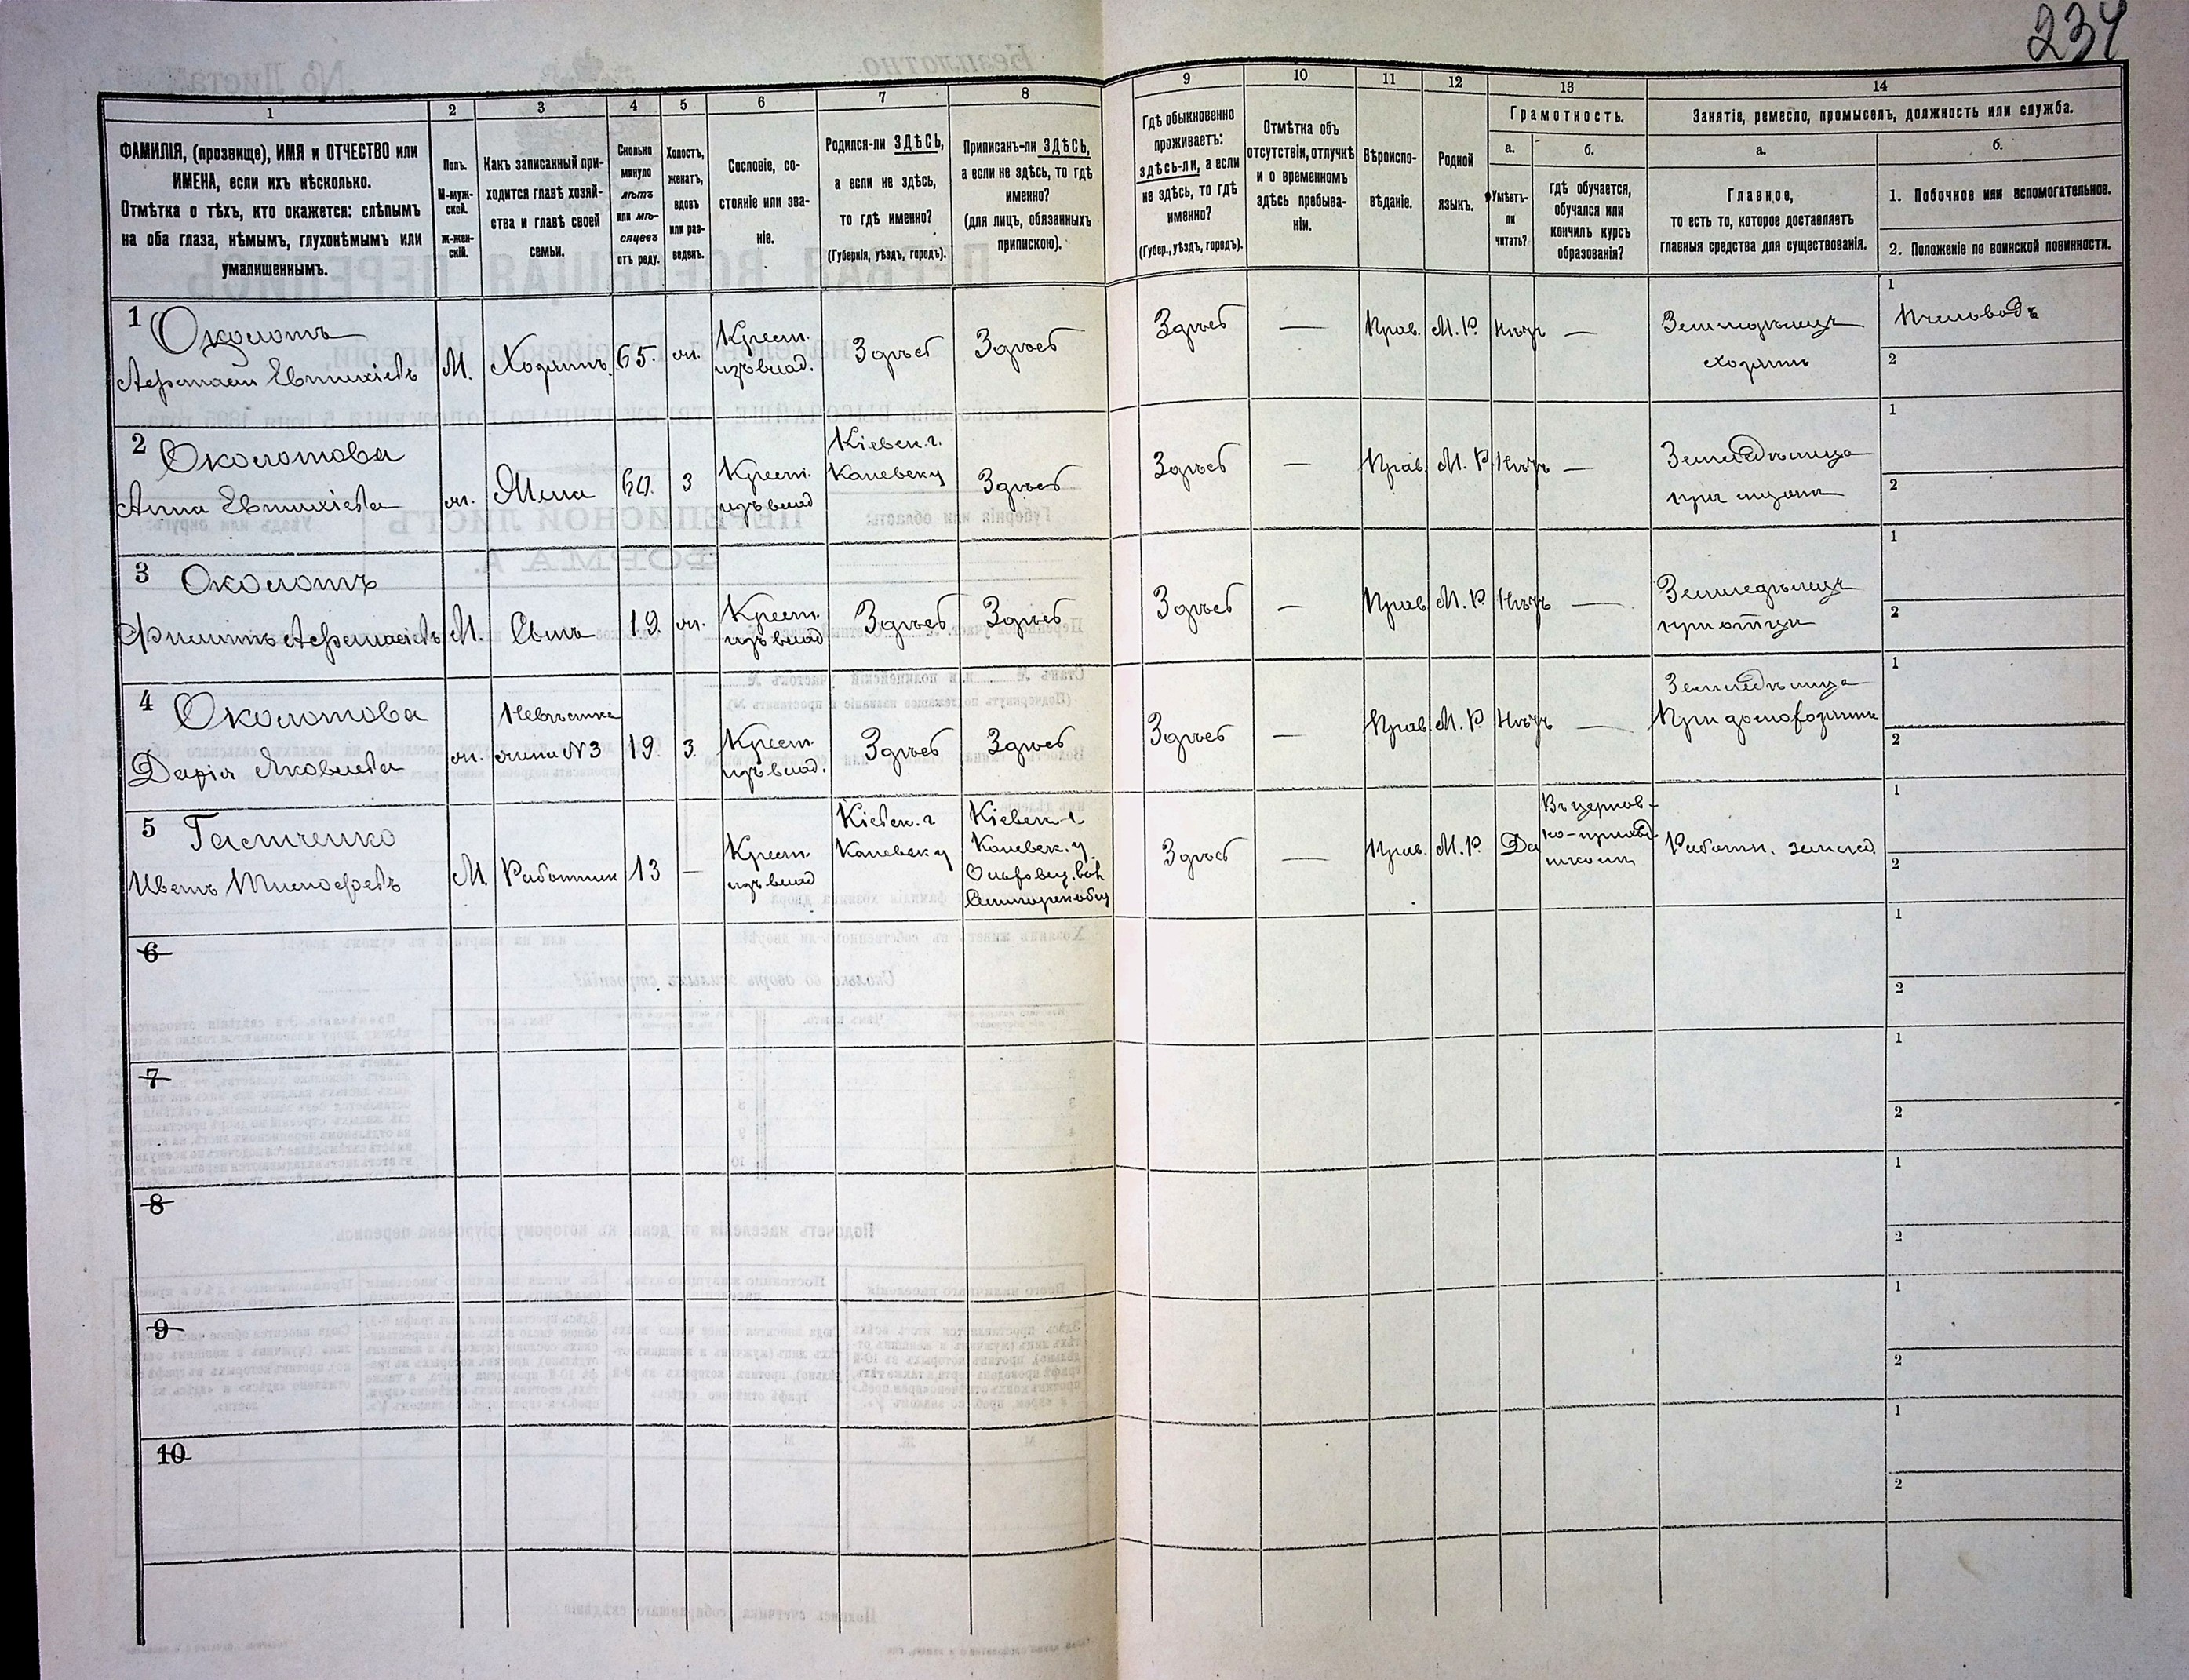 234
1
2
3
4
5
6
7
8
9
10
11
12
13
14
ФАМИЛІЯ, (прозвище), ИМЯ и ОТЧЕСТВО или
ИМЕНА, если ихъ нѣсколько.
Отмѣтка о тѣхъ, кто окажется: слѣпымъ
на оба глаза, нѣмымъ, глухонѣмымъ или
умалишеннымъ.
Полъ.
М-муж-
ской.
Ж-жен-
скій.
Какъ записанный при-
ходится главѣ хозяй-
ства и главѣ своей
семьи.
Сколько
минуло
лѣтъ
или мѣ-
сяцевъ
отъ роду.
Холостъ,
женатъ,
вдовъ
или раз-
веденъ.
Сословіе, со-
стояніе или зва-
ніе.
Родился-ли ЗДѢСЬ,
а если не здѣсь,
то гдѣ именно?
(Губернія, уѣздъ, городъ).
Приписанъ-ли ЗДѢСЬ,
а если не здѣсь, то гдѣ
именно?
(для лицъ, обязанныхъ
припискою).
Гдѣ обыкновенно
проживаетъ:
здѣсь-ли, а если
не здѣсь, то гдѣ
именно?
(Губер., уѣздъ, городъ).
Отмѣтка объ
отсутствіи, отлучкѣ
и о временномъ
здѣсь пребыва-
ніи.
Вѣроиспо-
вѣданіе.
Родной
языкъ.
Грамотность.
а.
Умѣетъ-
ли
читать?
б.
гдѣ обучается,
обучался или
кончилъ курсъ
образованія?
Занятіе, ремесло, промыселъ, должность или служба.
а.
Главное,
то есть то, которое доставляетъ
главныя средства для существованія.
б.
1. Побочное или вспомогательное.
2. Положеніе по воинской повинности.
1 Околотъ
Афанасій Евтихіевъ
М.
Хозяинъ
65.
ж.
Крест.
изъ влад.
Здѣсь
Здѣсь
Здѣсь
—
Прав.
М. Р.
Нѣтъ
—
Земледѣлецъ
хозяинъ
1 Пчеловодъ
2
2 Околотова
Анна Евтихіева
ж.
Жена
60.
З
Крест.
изъ влад
Кіевск. г.
Каневск у
Здѣсь
Здѣсь
—
Прав.
М. Р
Нѣтъ
—
Земледѣлица
при мужѣ
1
2
3 Околотъ
Филиппъ Афанасіевъ
М.
Сынъ
19.
ж.
Крест.
изъ влад
Здѣсь
Здѣсь
Здѣсь
—
Прав
М. Р
Нѣтъ
—
Земледѣлецъ
при отцѣ
1
2
4 Околотова
Дарія Яковлева
ж.
Невѣстка
жена N3
19.
З.
Крест.
изъ влад.
Здѣсь
Здѣсь
Здѣсь
—
Прав.
М. Р
Нѣтъ
—
Земледѣлица
При домохозяинѣ
1
2
5
М.
Работник
13
—
Крест.
изъ влад
Кіевск. г
Каневск у
Кіевск г
Каневск. у
Здѣсь
—
Прав.
М. Р.
Да
Въ церков-
но-приход
школѣ
Работн. землед
1
2
6
1
2
7
1
2
8
1
2
9
1
2
10
1
2